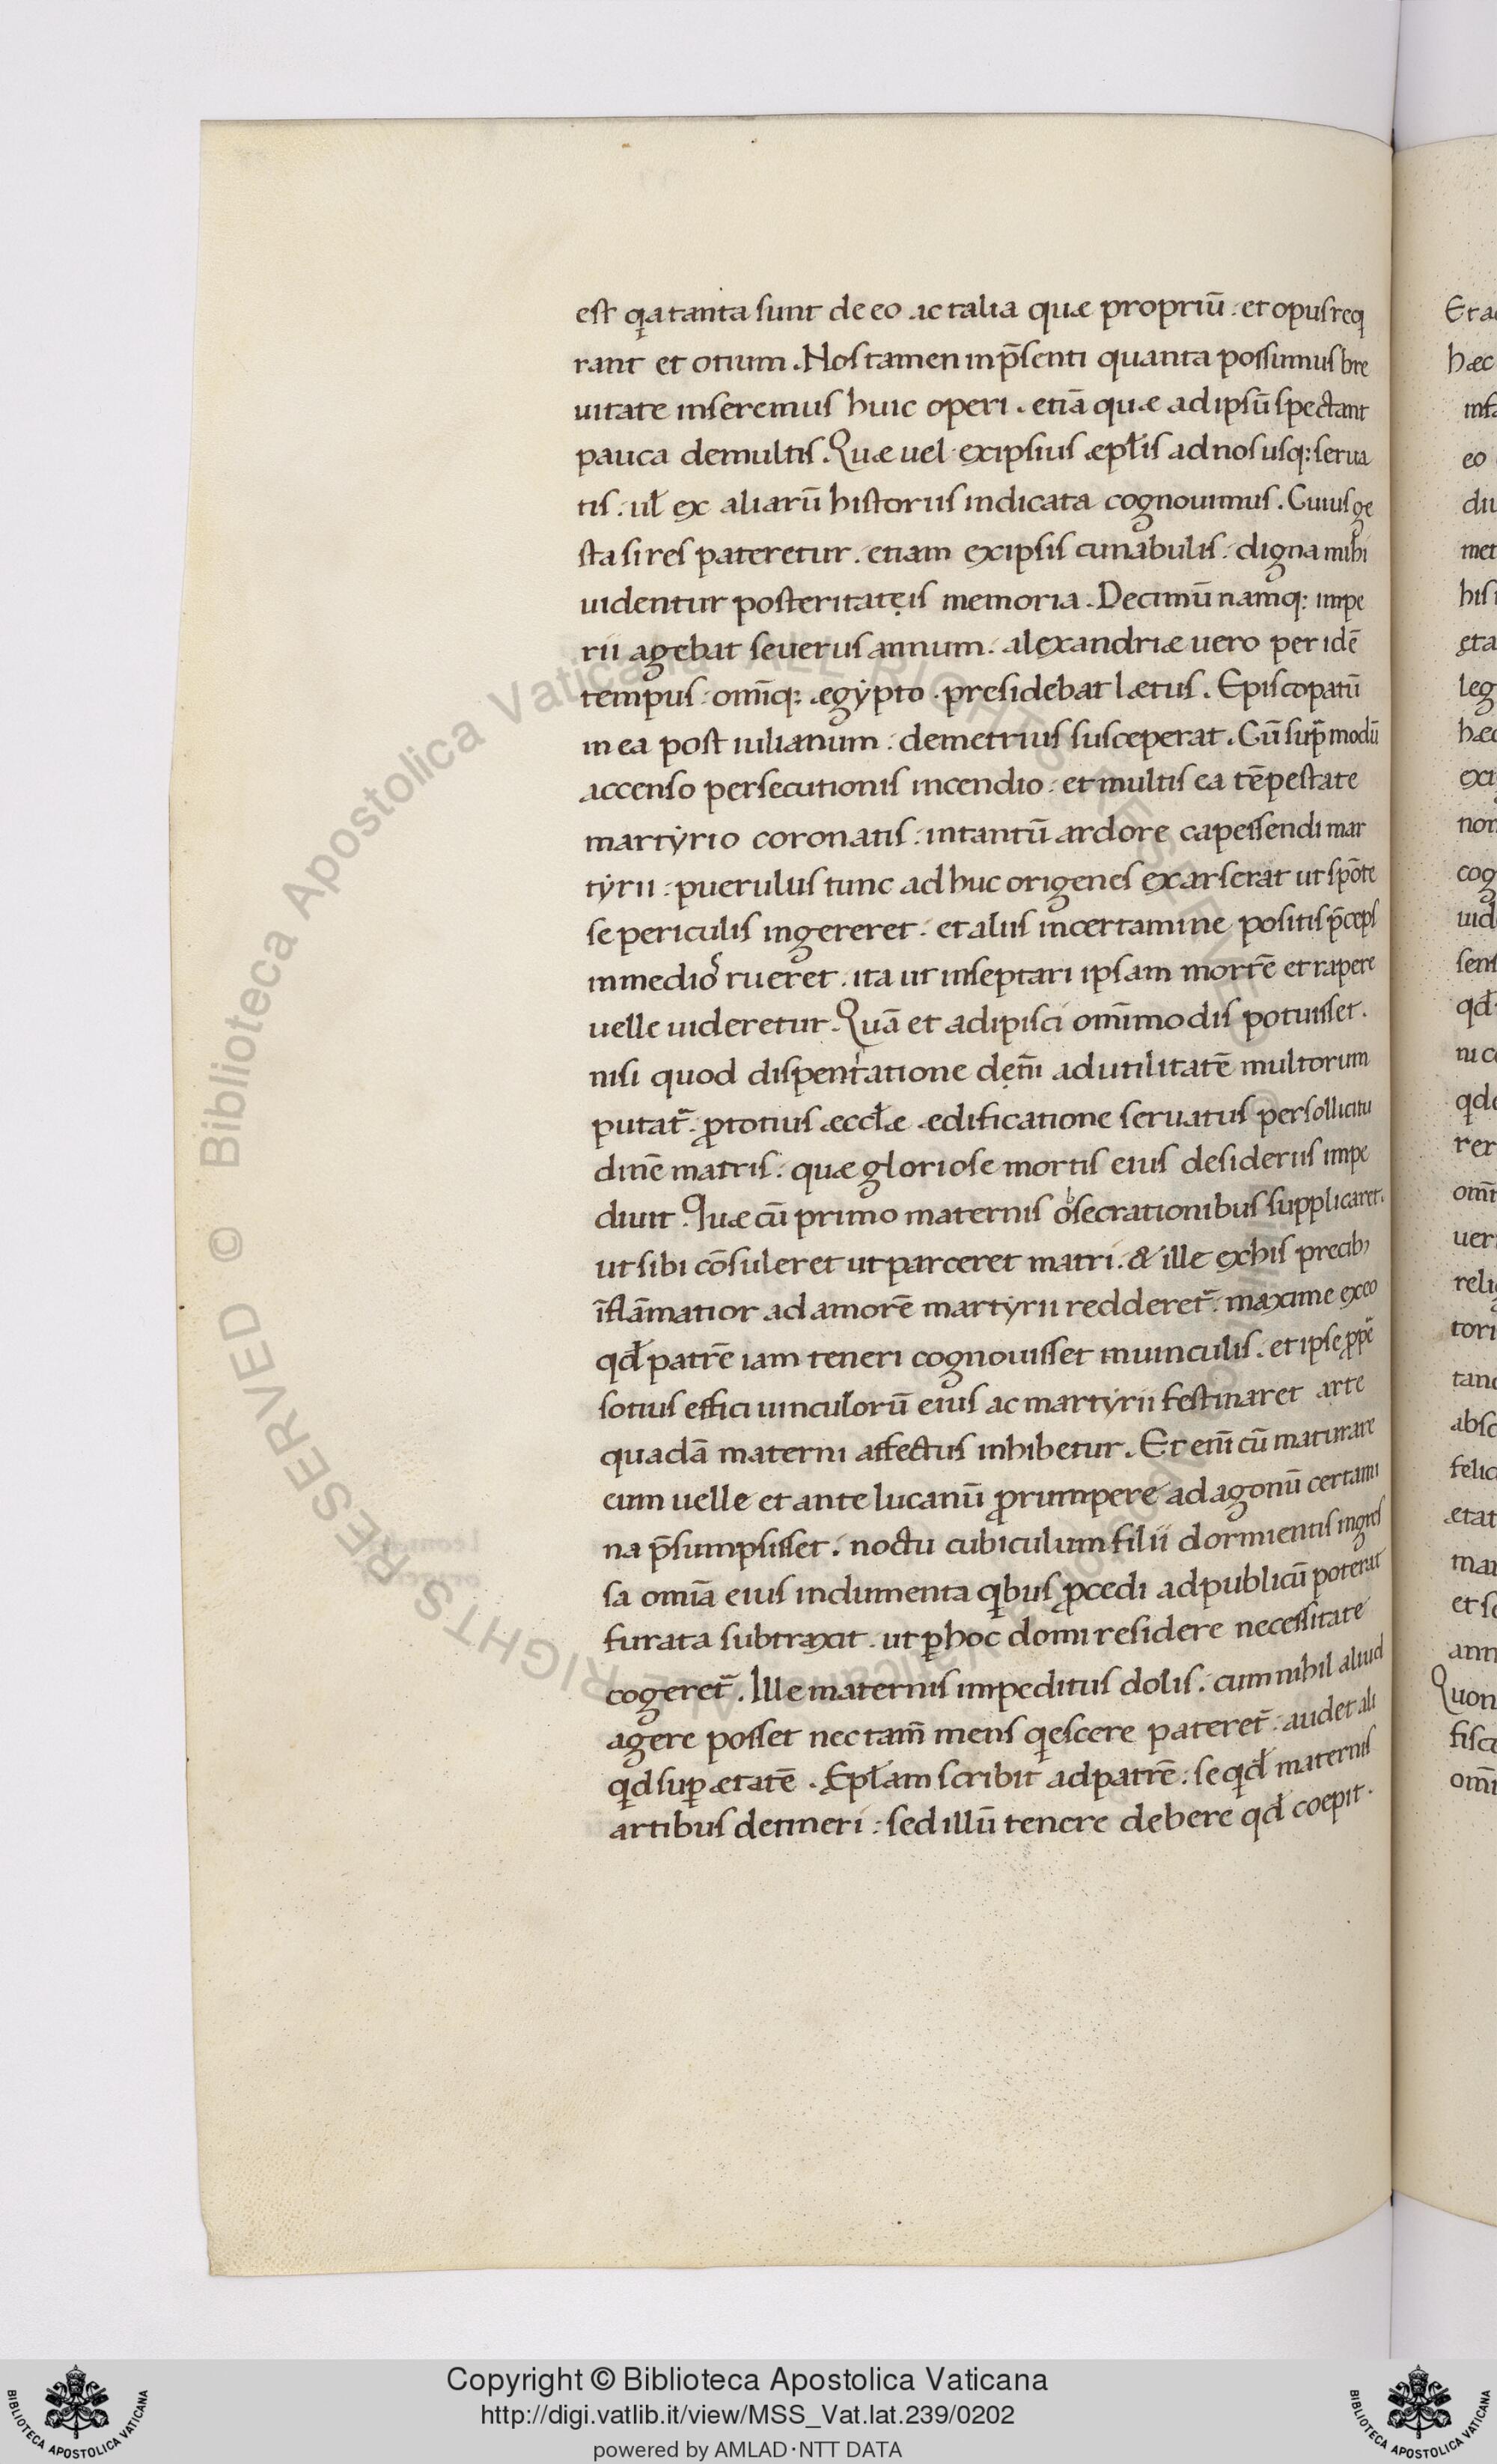 est qa tanta sunt de eo ac talia quæ propriū. et opus req
rant et otium. Nos tamen in p̄senti quanta possumus bre
uitate inseremus huic operi. etiā quæ ad ipsū spectant
pauca de multis. Quæ uel ex ipsius æpl̄is ad nos usq: serua
tis. ul̄ ex aliarū historiis indicata cognouimus. Cuius ge
sta si res pateretur. etiam ex ipsis cunabulis. digna mihi
uidentur posteritateis memoria. Decimū namq: impe
rii agebat seuerus annum. alexandriæ uero per idē
tempus. om̄iq: ægypto. presidebat lætus. Episcopatū
in ea post iulianum. demetrius susceperat. Cū sup̄ modū
accenso persecutionis incendio. et multis ea tēpestate
martyrio coronatis. in tantū ardore capessendi mar
tyrii. puerulus tunc adhuc origenes exarserat ut spōte
se periculis ingereret. et aliis in certamine positis p̄ceps
in medios rueret. ita ut inseptari ipsam mortē et rapere
uelle uideretur. Quā et adipisci om̄imodis potuisset.
nisi quod dispensatione dei ut n̄i ad utilitatē multorum
putat̄. ꝓ totius æccl̄æ ædificatione seruatus per sollicitu
dinē matris. quæ gloriose mortis eius desideriis impe
diuit. Quæ cū primo maternis obsecrationibus supplicaret.
ut sibi cōsuleret ut parceret matri. & ille ex his precib;
īflāmatior ad amorē martyrii redderet̄. maxime ex eo
qd̄ patrē iam teneri cognouisset in uinculis. et ipse ꝓpe
sotius effici uinculorū eius ac martyrii festinaret arte
quadā materni affectus inhibetur. Et eni̅ cū maturare
eum uelle et ante lucanū ꝓrumpere ad agonū certami
na p̄sumpsisset. noctu cubiculum filii dormientis ingres
sa omīa eius indumenta qibus ꝓcedi ad publicū poterat
furata subtraxit. ut ꝑ hoc domi residere necessitate
cogeret̄. Ille maternis impeditus dolis. cum nihil aliud
agere posset nec tam̄ mens qiescere pateret̄. audet ali
qid suꝑ ætatē. Epl̄am scribit ad patrē. se qid̄ maternis
artibus detineri. sed illū tenere debere qd̄ coepit.
Copyright © Biblioteca Apostolica Vaticana
http://digi.vatlib.it/view/MSS_Vat.lat.239/0202
powered by AMLAD·NTT DATA